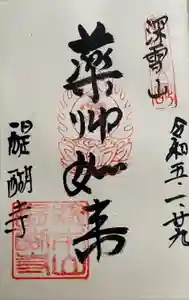 深雪山
令和五・一・廿九
薬師如来
醍醐寺